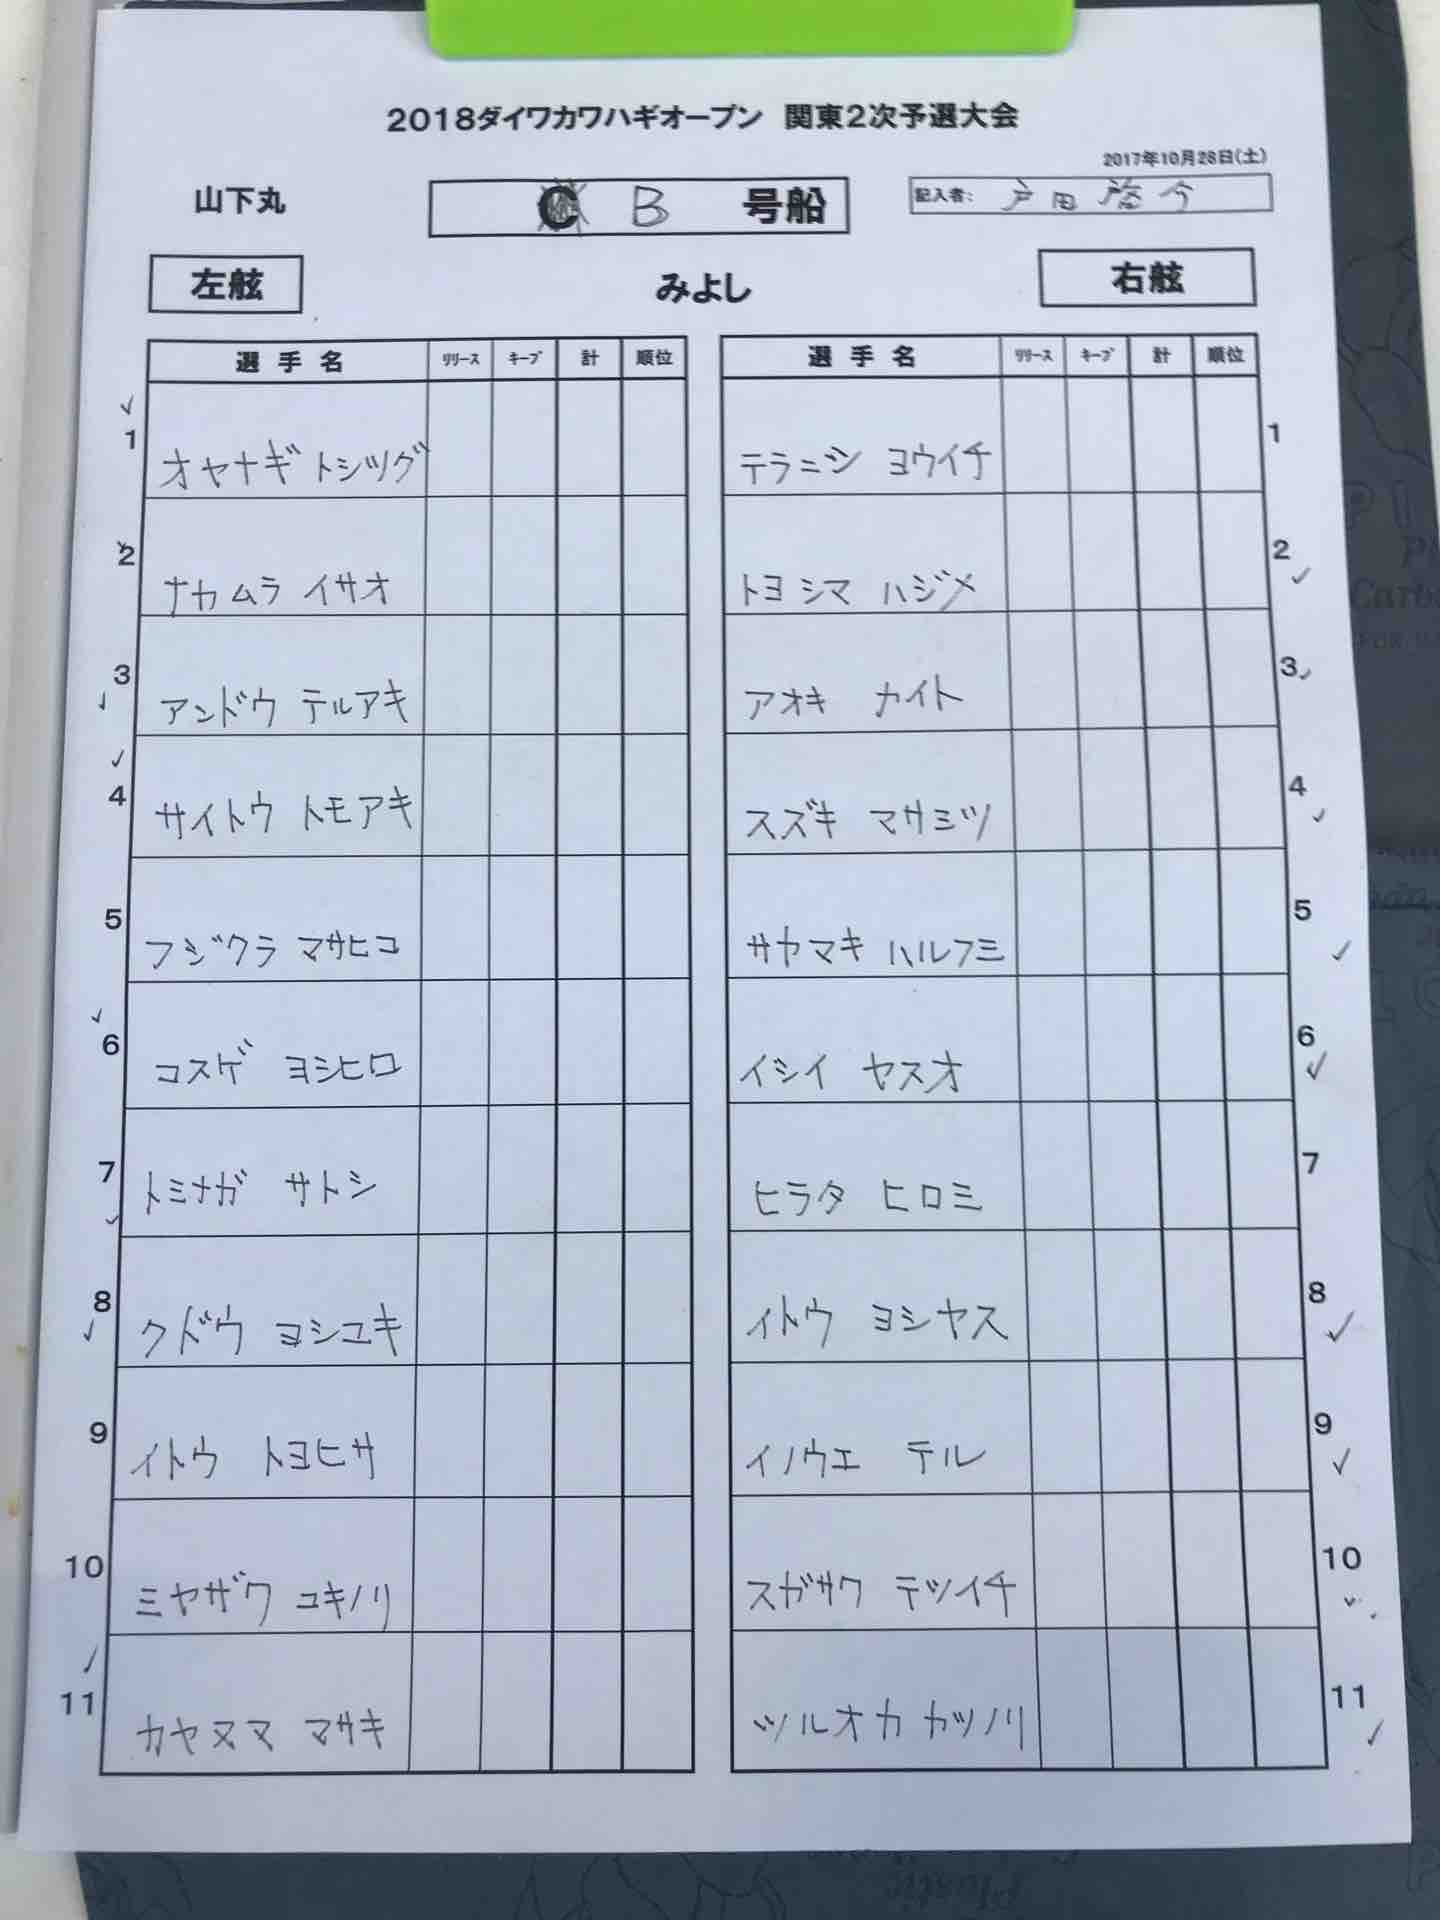 2018ダイワカワハギオープン 関東2次予選大会
2017年10月28日(土)
山下丸
B 号船
記入者: 戸田
左舷
みよし
右舷
選手名 リリース キープ 計 順位
1 オヤナギ トシツグ
2 ナカムラ イサオ
3 アンドウ テルアキ
4 サイトウ トモアキ
5 フジクラ マサヒコ
6 コスゲ ヨシヒロ
7 トミナガ サトシ
8 クドウ ヨシユキ
9 イトウ トヨヒサ
10 ミヤザワ ユキノリ
11 カヤヌマ マサキ
選手名 リリース キープ 計 順位
テラニシ ヨウイチ 1
トヨシマ ハジメ 2
アオキ カイト 3
スズキ マサミツ 4
サヤマキ ハルフミ 5
イシイ ヤスオ 6
ヒラタ ヒロミ 7
イトウ ヨシヤス 8
イノウエ テル 9
スガサワ テツイチ 10
ツルオカ カツノリ 11
Plastic